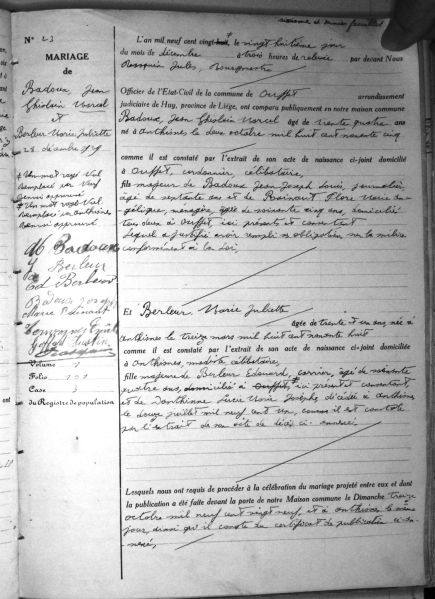 seizième et dernier feuillet
N° 23
MARIAGE
de
Badoux, Jean
Ghislain Marcel
et
Berleur Marie Juliette
28 décembre 1929
L'an mil neuf cent vingt-neuf, le vingt huitième jour
du mois de décembre à trois heures de relevée par devant Nous
Rossquin Jules, Bourgmestre
Officier de l'Etat-Civil de la commune de Ouffet arrondissement
judiciaire de Huy, province de Liège, ont comparu publiquement en notre maison commune
Badoux, Jean Ghislain Marcel âgé de trente quatre ans
né à Anthisnes le deux octobre mil huit cent nonante cinq
comme il est constaté par l'extrait de son acte de naissance ci-joint domicilié
à Ouffet, cordonnier, célibataire,
fils majeur de Badoux Jean Joseph Louis, journalier,
âgé de septante ans et de Rainaut Flore Marie An-
gélique, ménagère, âgée de soixante cinq ans, domiciliés
tous deux à Ouffet ici présents et consentant
Lequel a justifié avoir rempli ses obligations sur la milice
conformément à la Loi,
Et Berleur, Marie Juliette
âgée de trente et un ans, née à
Anthisnes le treize mars mil huit cent nonante huit
comme il est constaté par l'extrait de son acte de naissance ci-joint domiciliée
à Anthisnes, modiste célibataire,
fille majeure de Berleur Edouard, carrier, âgé de soixante
quatre ans, domicilié à Ouffet, ici présent et consentant
et de Donthinne Lucie Marie Josèphe décédée à Anthisnes
le douze juillet mil neuf cent un, comme il est constaté
par l'extrait de son acte de décès ci-annexé
Lesquels nous ont requis de procéder à la célébration du mariage projeté entre eux et dont
la publication a été faite devant la porte de notre Maison commune le Dimanche treize
octobre mil neuf cent vingt neuf, et à Anthisnes le même
jour, ainsi qu'il conste du certificat de publication ci-an-
nexé,
Un mot rayé nul
Remplacé par neuf
Un mot rayé nul
Remplacé par Anthisnes
Badoux
Berleur
Ed Berleur
Badoux Joseph
Marie Rainaut
Volume
Folio
Case
du Registre de population